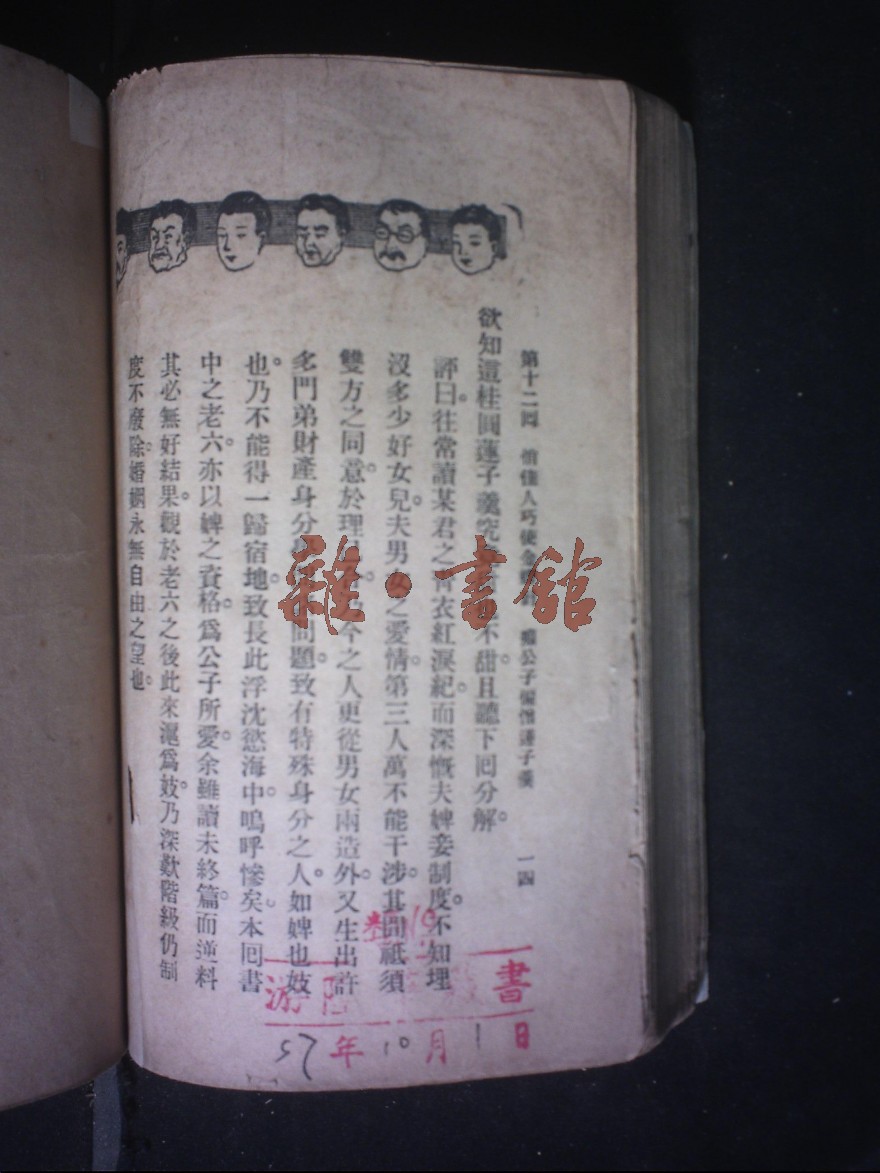 第十二回 佳人巧使金 公子 蓮子羹 一四
欲知這桂圓蓮子羹究 不甜。且聽下回分解。
評曰。往常讀某君之青衣紅淚紀。而深慨夫婢妾制度。不知埋
沒多少好女兒。夫男女之愛情。第三人萬不能干涉。其間祗須
雙方之同意。於理 今之人更從男女兩造外。又生出許
多門弟財產身分 問題。致有特殊身分之人。如婢也妓
也。乃不能得一歸宿地。致長此浮沈慾海中。嗚呼慘矣。本回書
中之老六。亦以婢之資格。爲公子所愛。余雖讀未終篇。而逆料
其必無好結果。觀於老六之後此來滬爲妓。乃深歎階級仍制
度不廢除。婚姻永無自由之望也。
雜·書館
書
57年10月1日